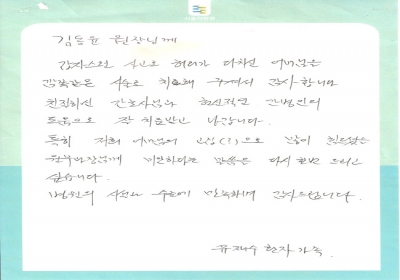 김동윤 원장님께
갑작스런 사고로 허리가 다치신 어머님을
감쪽같은 수술로 치료해 주셔서 감사합니다
친절하신 간호사님과 헌신적인 간병인의
도움으로 잘 치료받고 나갑니다.
특히 저희 어머님의 고집(?)으로 많이 힘드셨을
미안하다는 말씀을 다시 한번 드리고
싶습니다.
병원의 수고에 만족하며 감사드립니다.
유재수 환자 가족